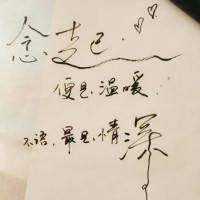 念起
便是温暖
不语,最是情深